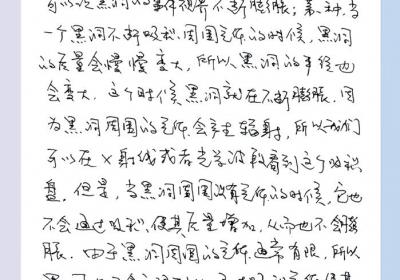 可以说黑洞的事件视界不断膨胀;第二种,当
一个黑洞不断吸积周围气体的时候,黑洞
的质量会慢慢变大,所以黑洞的半径也
会变大,这个时候黑洞就在不断膨胀。因
为黑洞周围的气体会产生辐射,所以我们
可以在X射线或者光学波段看到这个吸积
盘。但是,当黑洞周围没有气体的时候,它也
不会通过吸积使其质量增加,从而也不会膨
胀。由于黑洞周围的气体通常有限,所以